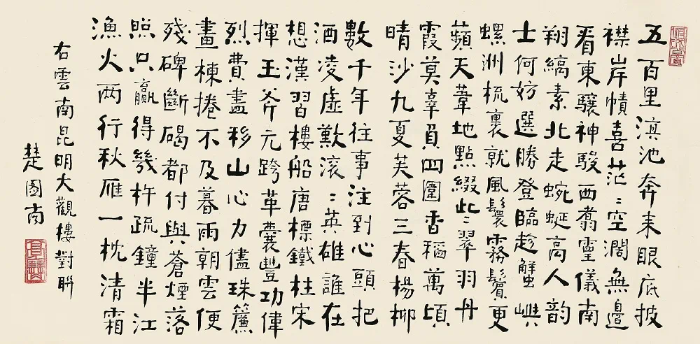 五百里滇池奔来眼底披
襟岸幘喜茫〻空闊無邊
看東驤神駿西翥靈儀南
翔縞素北走蜿蜒高人韻
士何妨選勝登臨趁蟹嶼
螺洲梳裹就風鬟霧鬢更
蘋天葦地點綴些〻翠羽丹
霞莫辜負四圍香稻萬頃
晴沙九夏芙蓉三春楊柳
數千年往事注到心頭把
酒凌虛歎滾〻英雄誰在
想漢習樓船唐標鐵柱宋
揮玉斧元跨革囊豐功偉
烈費盡移山心力儘珠簾
畫棟捲不及暮雨朝雲便
殘碑斷碣都付與蒼煙落
照只贏得幾杵疏鐘半江
漁火兩行秋雁一枕清霜
右雲南昆明大觀樓對聯
楚圖南